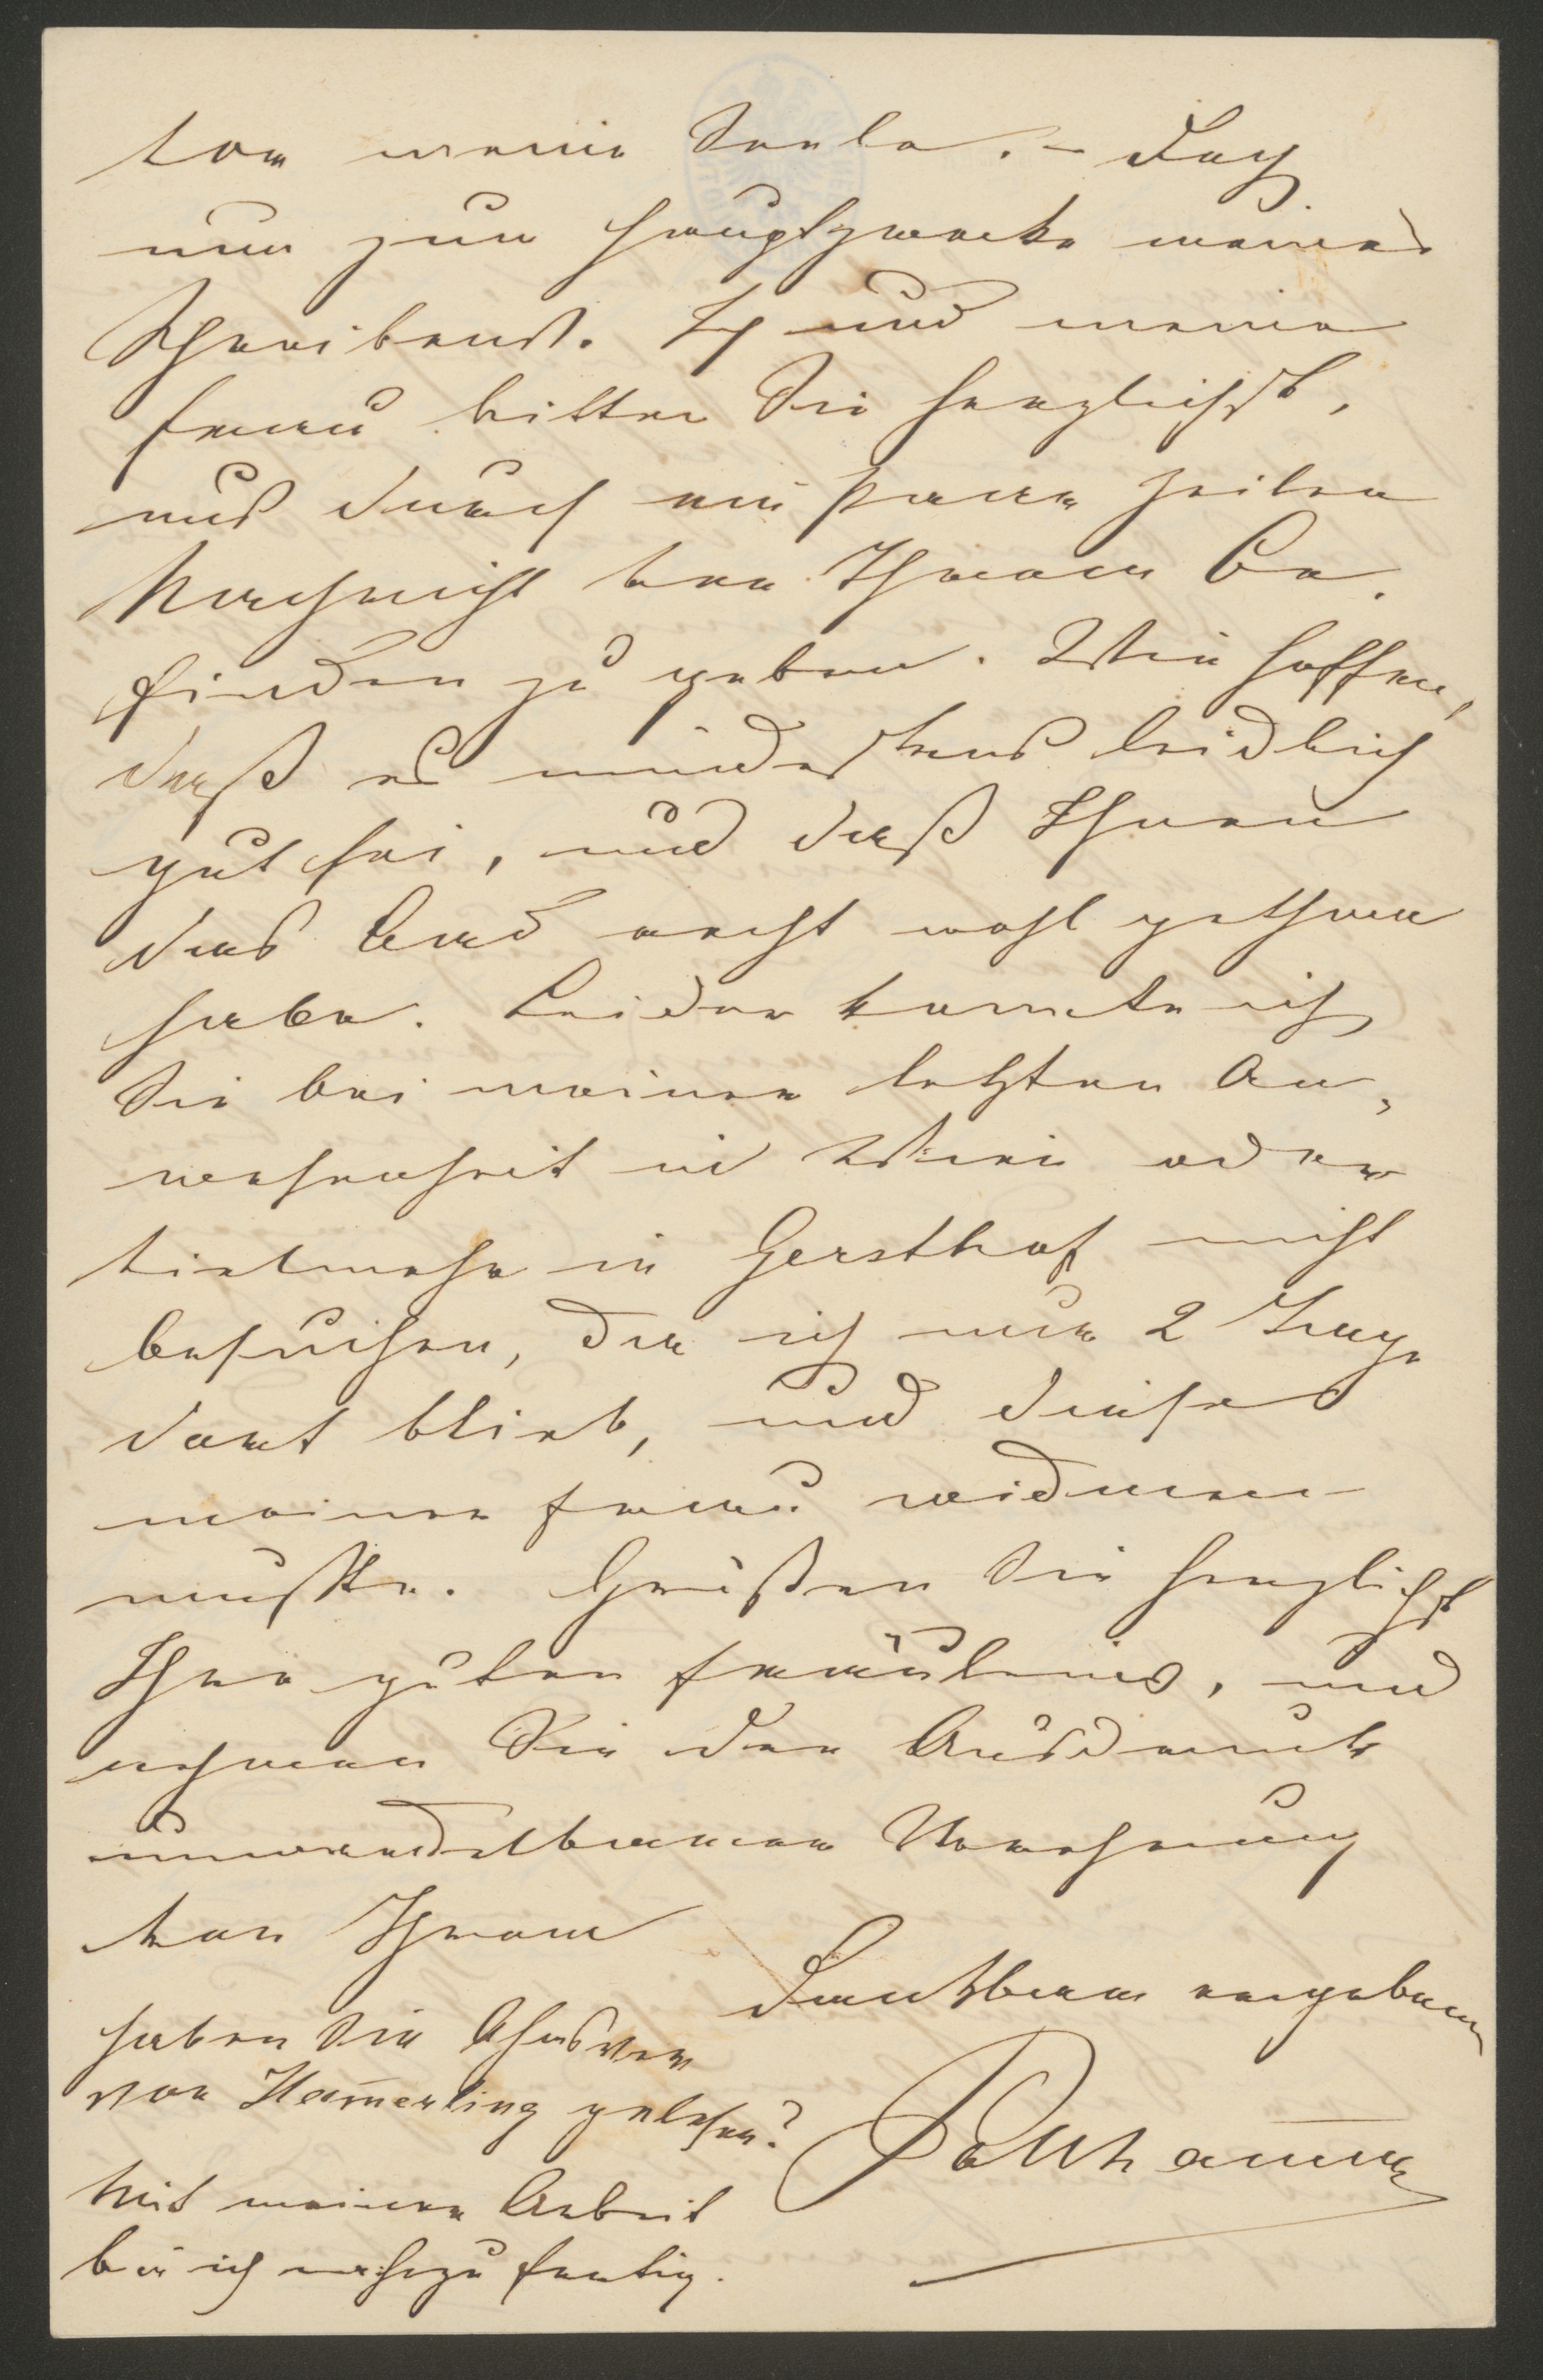 vor meine Seele. – Doch
nun zum Hauptzwecke meines
Schreibens. Ich und meine
Frau bitten Sie herzlichst,
uns durch ein paar Zeilen
Nachricht von Ihrem Be¬
finden zu geben. Wir hoffen,
daß es mindestens leidlich
gut sei, und daß Ihnen
das Bad recht wohl gethan
habe. Leider konnte ich
Sie bei meiner letzten An¬
wesenheit in Wien oder
vielmehr in Gersthof nicht
besuchen, da ich nur 2 Tage
dort blieb, und diese
meiner Frau widmen
mußte. Grüßen Sie herzlichst
Ihre guten Fräuleins, und
nehmen Sie den Ausdruck
unwandelbarer Verehrung
von Ihrem
Dankbar ergebenen
Pollhamer
Haben Sie Ahasver
von Hamerling gelesen?
Mit meiner Arbeit
bin ich nahezu fertig.